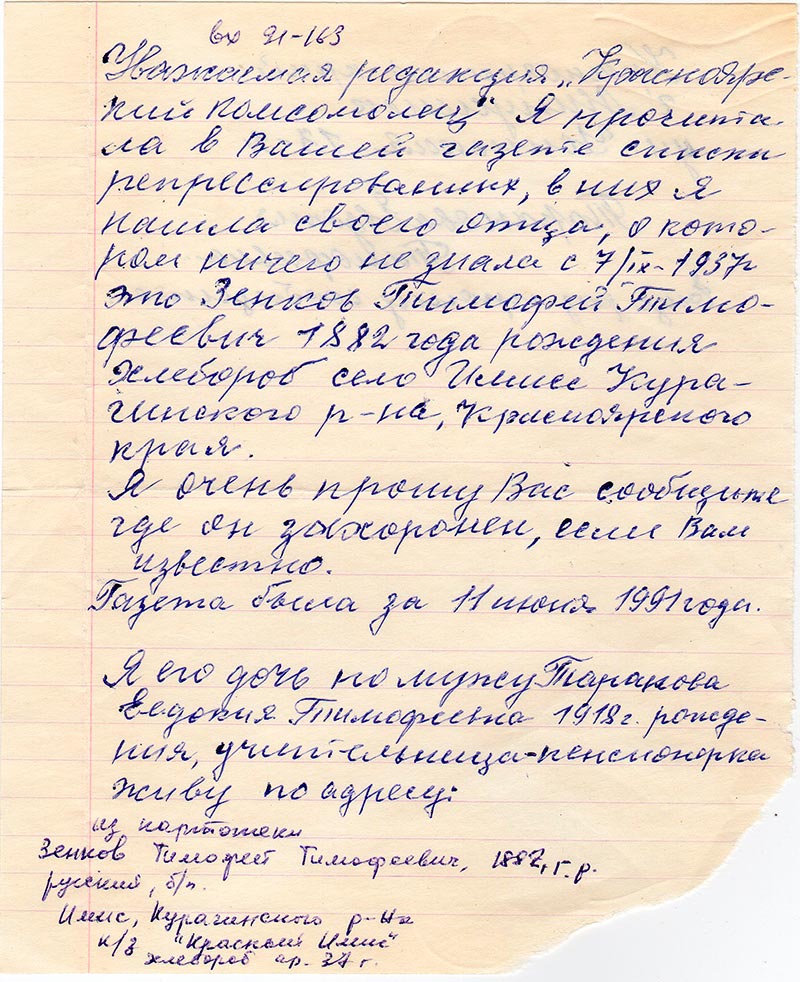 вх 91-163
Уважаемая редакция „Краснояр-
ский комсомолец" Я прочита-
ла в Вашей газете списки
репрессированных, в них я
нашла своего отца, о кото-
ром ничего не знала с 7/IX-1937г
это Зенков Тимофей Тимо-
феевич 1882 года рождения
хлебороб село Имисс Кура-
гинского р-на, Красноярского
края.
Я очень прошу Вас сообщите
где он захоронен, если Вам
известно.
Газета была за 11 июня 1991 года.
Я его дочь по мужу Таракова
Евдокия Тимофеевна 1918 г. рожде-
ния, учительница-пенсионерка
живу по адресу:
из картотеки
Зенков Тимофей Тимофеевич, 1882, г.р.
русский, б/п.
Имис, Курагинского р-на
к/з "Красный Имис"
хлебороб ар. 37 г.